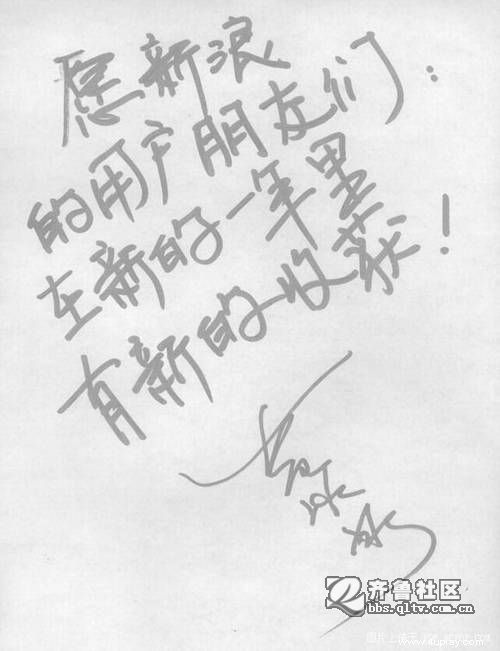 愿新浪
的用户朋友们:
在新的一年里
有新的收获!
齐鲁社区
bbs.qltv.com.cn
www.4uplay.com